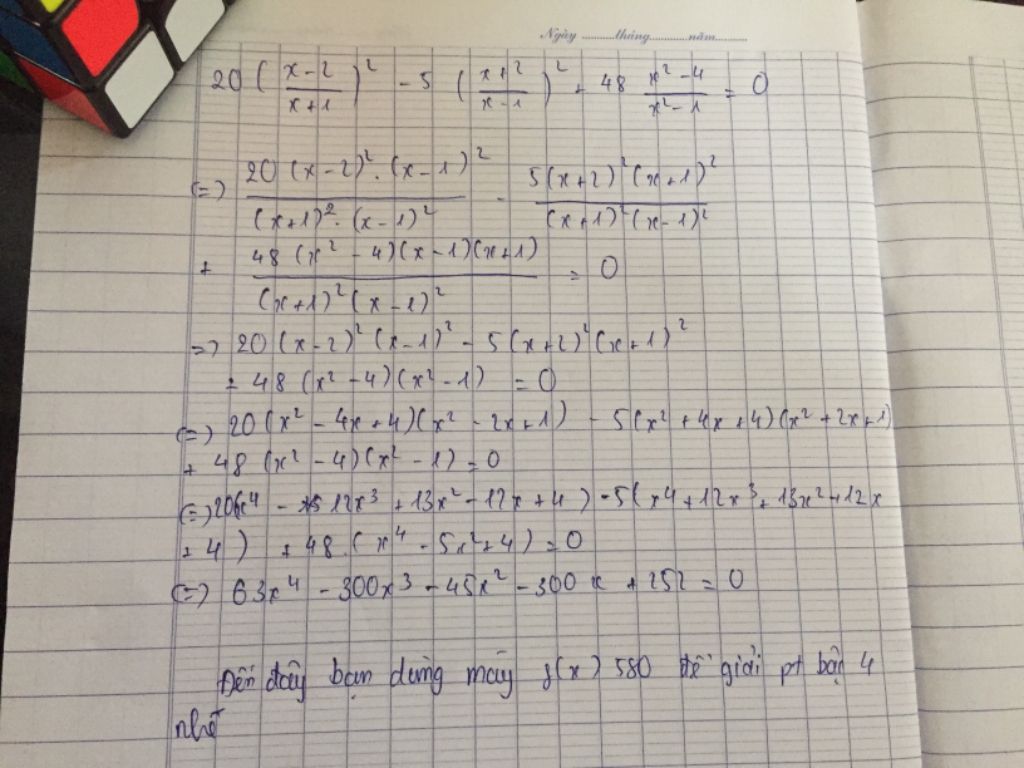 Ngày ..........tháng...........năm..........
20 (\frac{x-2}{x+1})² - 5 (\frac{x+2}{x-1})² + 48 \frac{x²-4}{x²-1} = 0
(=) \frac{20 (x-2)² . (x-1)²}{(x+1)² . (x-1)²} - \frac{5(x+2)²(x+1)²}{(x+1)²(x-1)²}
+ \frac{48 (x²-4)(x-1)(x+1)}{(x+1)²(x-1)²} = 0
=) 20 (x-2)² (x-1)² - 5(x+2)²(x+1)²
+ 48 (x²-4)(x²-1) = 0
(=) 20(x² - 4x+4)(x² - 2x+1) - 5(x²+4x+4)(x²+2x+1)
+ 48 (x²-4)(x²-1) = 0
(=) 20(x⁴ - 12x³ + 13x² - 12x + 4) - 5(x⁴ + 12x³ + 13x² + 12x
+ 4) + 48.(x⁴ - 5x² + 4) = 0
(=) 63x⁴ - 300x³ - 45x² - 300x + 252 = 0
Đến đây bạn dùng máy f(x) 580 để giải pt bậc 4
nhé